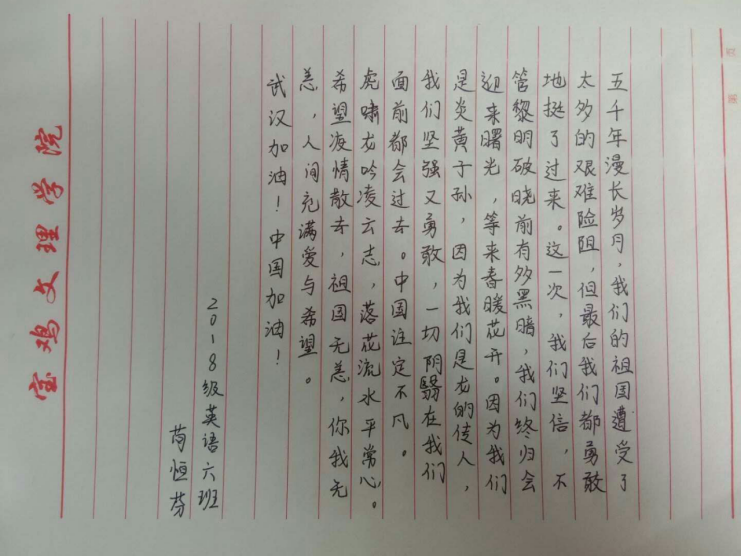 五千年漫长岁月，我们的祖国遭受了
太多的艰难险阻，但最后我们都勇敢
地挺了过来。这一次，我们坚信，不
管黎明破晓前有多黑暗，我们终归会
迎来曙光，等来春暖花开。因为我们
是炎黄子孙，因为我们是龙的传人，
我们坚强又勇敢，一切阴翳在我们
面前都会过去。中国注定不凡。
虎啸龙吟凌云志，落花流水平常心。
希望疫情散去，祖国无恙，你我无
恙，人间充满爱与希望。
武汉加油！中国加油！
2018级英语六班
苟恒芬
宝鸡文理学院